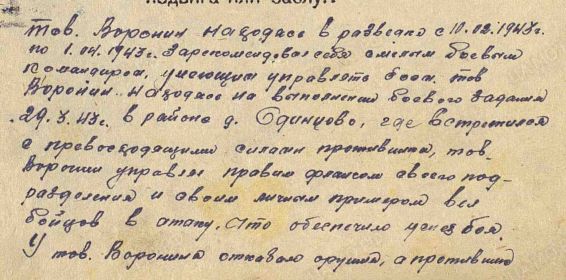 подвига или заслуг
Тов. Воронин находясь в разведке с 10.02.1943г.
по 1.04.1943г. Зарекомендовал себя смелым боевым
командиром, умеющим управлять боем. тов
Воронин находясь на выполнении боевого задания
29.3.43г. в районе д. Одинцово, где встретился
с превосходящими силами противника, тов.
Воронин управлял правым флангом своего под-
разделения и своим личным примером вел
бойцов в атаку. Это обеспечило успех боя.
У тов. Воронина отказало оружие, а противник